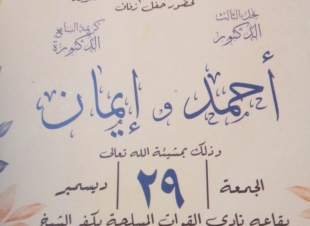 لحضور حفل زفاف
نجل الثالث كريمة السابع
الدكتور الدكتور
أحمد و إيمان
وذلك بمشيئة الله تعالى
الجمعة ٢٩ ديسمبر
بقاعة نادي القوات المسلحة بكفر الشيخ